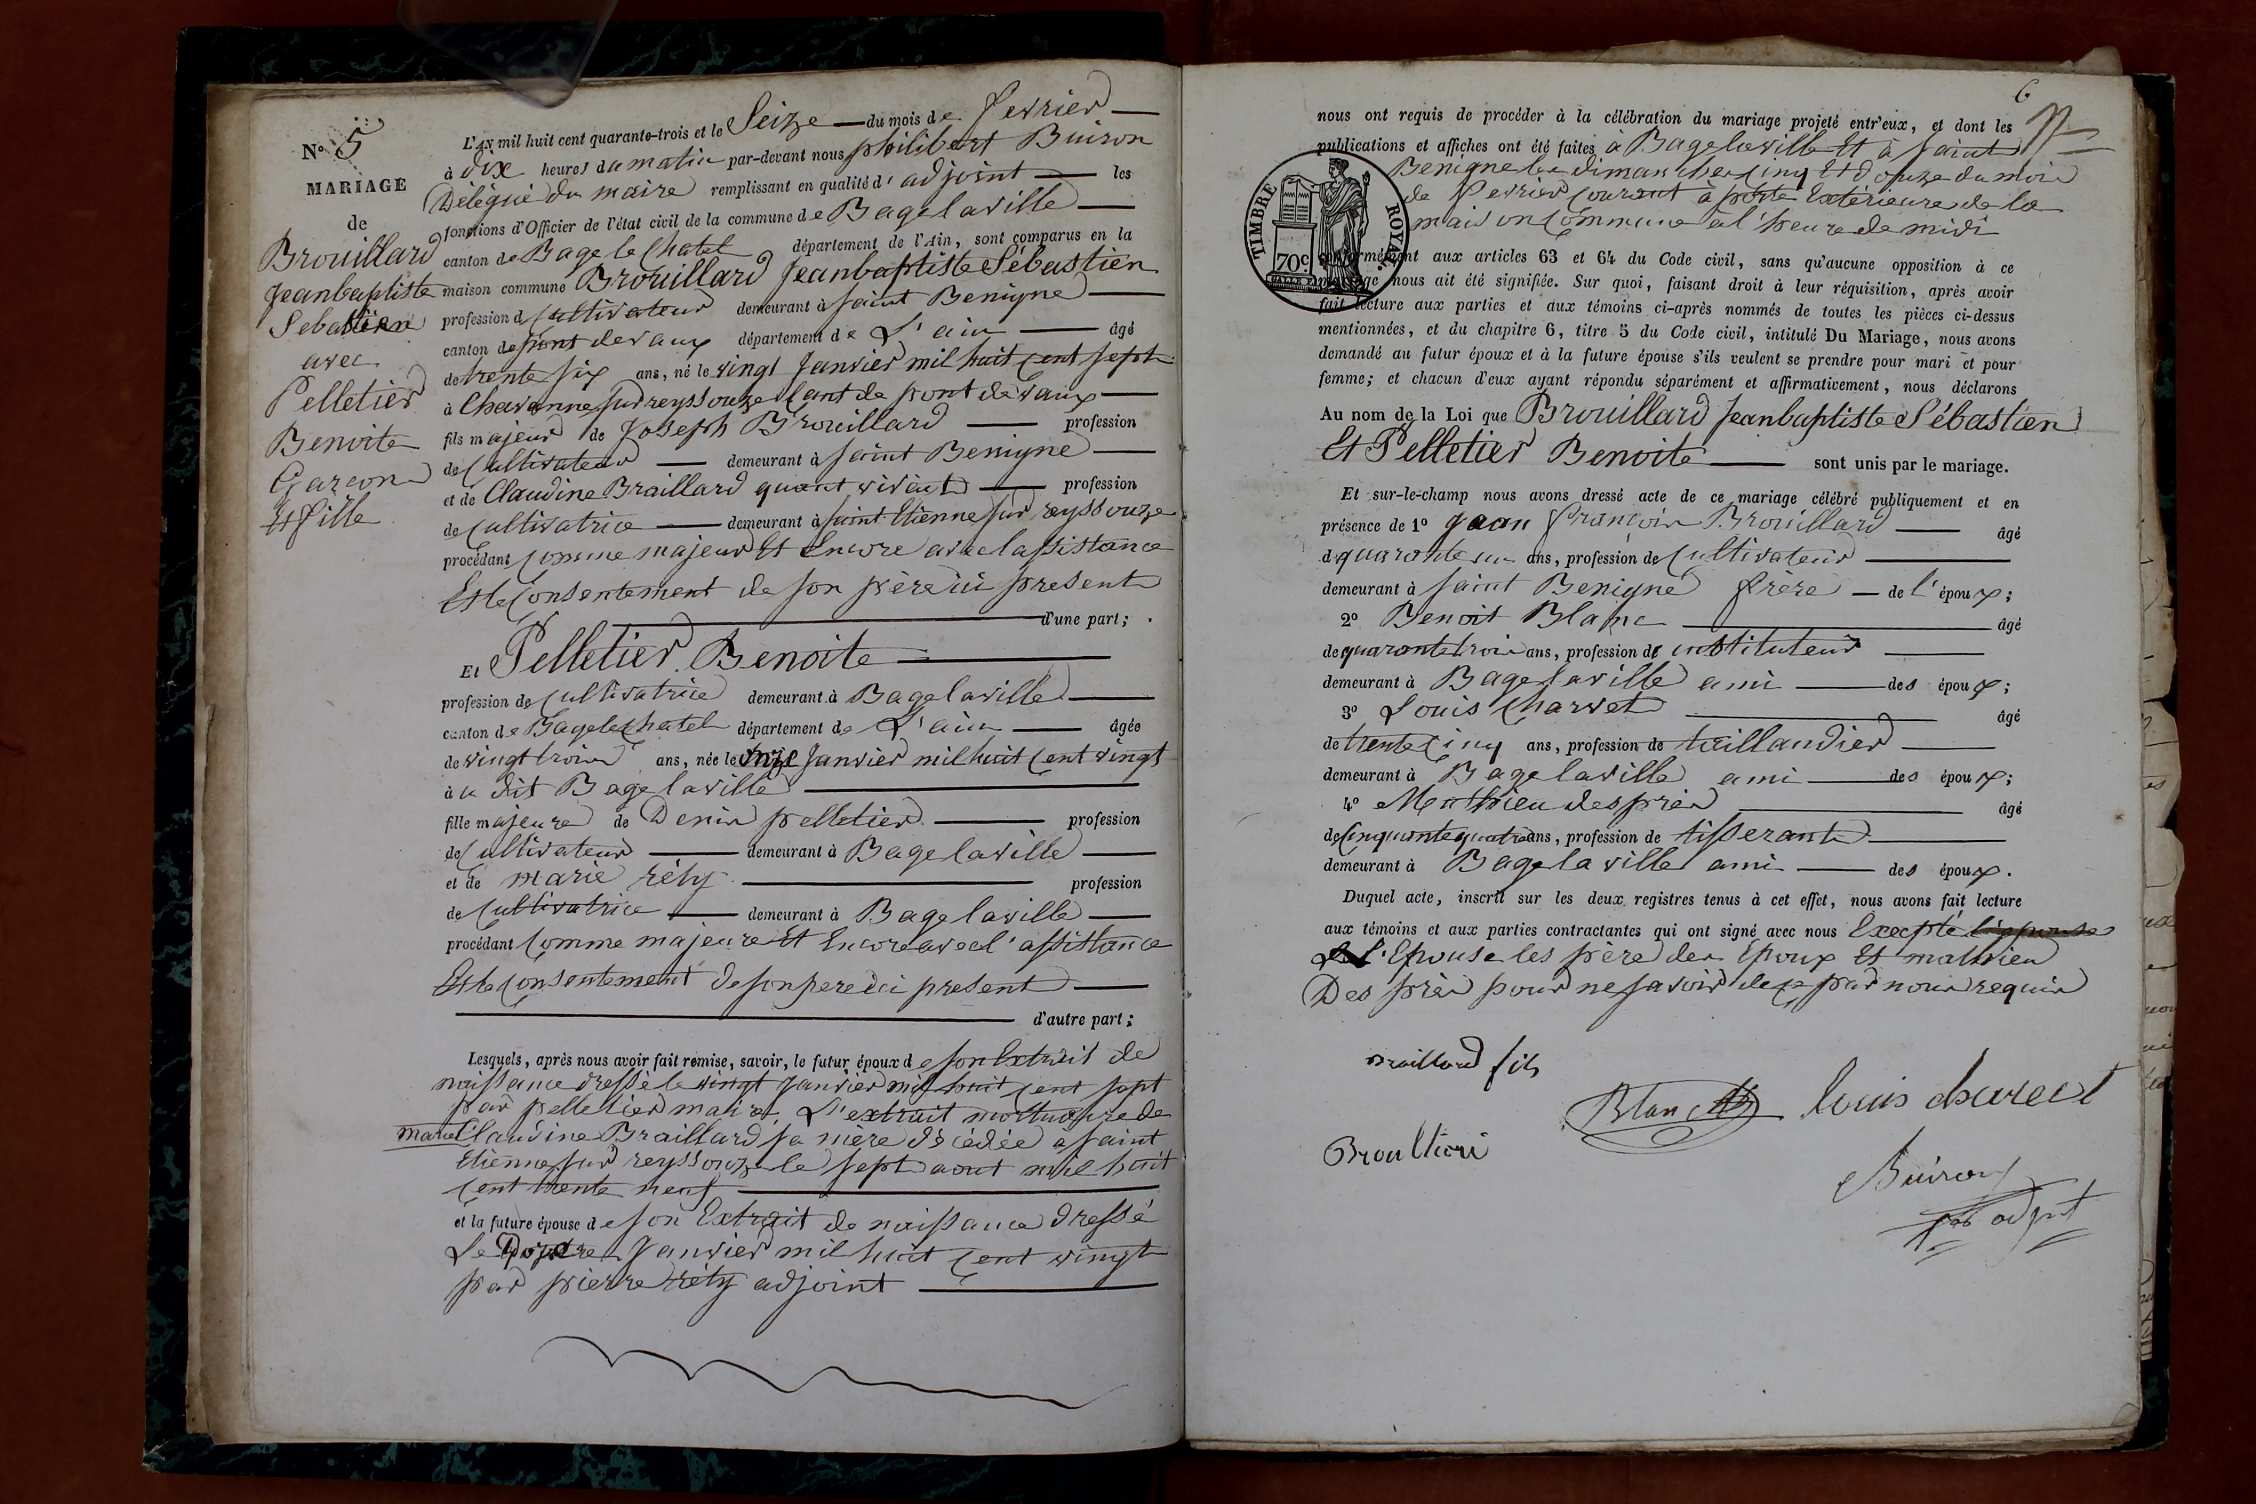 N° 5
MARIAGE
de
Brouillard
Jeanbaptiste
Sebastien
avec
Pelletier
Benoite
Garcon
Et fille
L'AN mil huit cent quarante-trois et le Seize du mois de fevrier
à dix heures du matin par-devant nous philibert Buiron
Délégué du maire remplissant en qualité d'adjoint les
fonctions d'Officier de l'état civil de la commune de Bagelaville
canton de Bage le Chatel département de l'Ain, sont comparus en la
maison commune Brouillard Jeanbaptiste Sébastien
profession de cultivateur demeurant à saint Benigne
canton de pont devaux département de L'ain âgé
de trente six ans, né le vingt Janvier mil huit cent sept
à Chavanne sur reyssouze Cant de pont de vaux
fils majeur de Joseph Brouillard profession
de Cultivateur demeurant à saint Benigne
et de Claudine Braillard quant vivait profession
de Cultivatrice demeurant à saint Etienne sur reyssouze
procédant Comme majeur Et Encore avec lassistance
Et le Consentement de son père ici present
d'une part;
ET Pelletier Benoite
profession de Cultivatrice demeurant à Bagelaville
canton de Bagelechatel département de L'ain âgée
de vingt trois ans, née le onze Janvier mil huit Cent vingt
à u dit Bagelaville
fille majeure de Denis pelletier profession
de Cultivateur demeurant à Bagelaville
et de marie réty profession
de Cultivatrice demeurant à Bagelaville
procédant Comme majeure Et Encore avec l'assistance
Et le Consentement de son pere ici present
d'autre part;
Lesquels, après nous avoir fait remise, savoir, le futur époux de son Extrait de
naissance dressé le vingt Janvier mil huit cent sept
par pelletier maire, L'extrait mortuaire de
marie Claudine Braillard sa mère décédée a saint
Etienne sur reyssouze le sept aout mil huit
Cent trente neuf
et la future épouse de son Extrait de naissance dressé
Le Douze Janvier mil huit cent vingt
par pierre réty adjoint
6
nous ont requis de procéder à la célébration du mariage projeté entr'eux, et dont les
publications et affiches ont été faites à Bagelaville Et à saint
Benigne les dimanches Cinq Et Douze du mois
de Fevrier Courant à porte Extérieure de la
maison Commune à l'heure de midi
TIMBRE ROYAL.
70c
conformément aux articles 63 et 64 du Code civil, sans qu'aucune opposition à ce
mariage nous ait été signifiée. Sur quoi, faisant droit à leur réquisition, après avoir
fait lecture aux parties et aux témoins ci-après nommés de toutes les pièces ci-dessus
mentionnées, et du chapitre 6, titre 5 du Code civil, intitulé Du Mariage, nous avons
demandé au futur époux et à la future épouse s'ils veulent se prendre pour mari et pour
femme; et chacun d'eux ayant répondu séparément et affirmativement, nous déclarons
Au nom de la Loi que Brouillard Jeanbaptiste Sébastien
Et Pelletier Benoite sont unis par le mariage.
Et sur-le-champ nous avons dressé acte de ce mariage célébré publiquement et en
présence de 1° jean françois Brouillard âgé
de quarante un ans, profession de Cultivateur
demeurant à saint Benigne frère de l'époux;
2° Benoit Blanc âgé
de quarante trois ans, profession de instituteur
demeurant à Bagelaville ami des époux;
3° Louis Charvet âgé
de trente Cinq ans, profession de taillandier
demeurant à Bagelaville ami des époux;
4° Mathieu desprès âgé
de Cinquante quatre ans, profession de tisserant
demeurant à Bagelaville ami des époux.
Duquel acte, inscrit sur les deux registres tenus à cet effet, nous avons fait lecture
aux témoins et aux parties contractantes qui ont signé avec nous Excepté l'épouse
L'Epouse les père des Epoux Et mathieu
Des près pour ne savoir de ce par nous requis
Braillard fils
Blanc
louis charvet
Buiron
adjoint